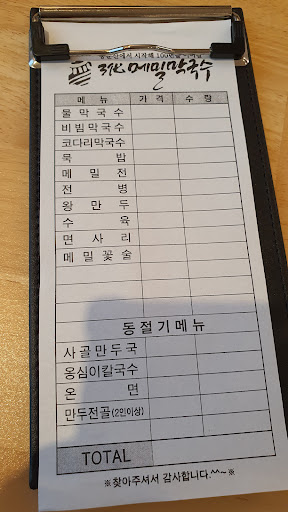 3代 메밀막국수
메뉴 가격 수량
물막국수
비빔막국수
코다리막국수
묵밥
메밀전
전병
왕만두
수육
면사리
메밀꽃술
동절기메뉴
사골만두국
옹심이칼국수
온면
만두전골(2인이상)
TOTAL
※찾아주셔서 감사합니다.^^~※